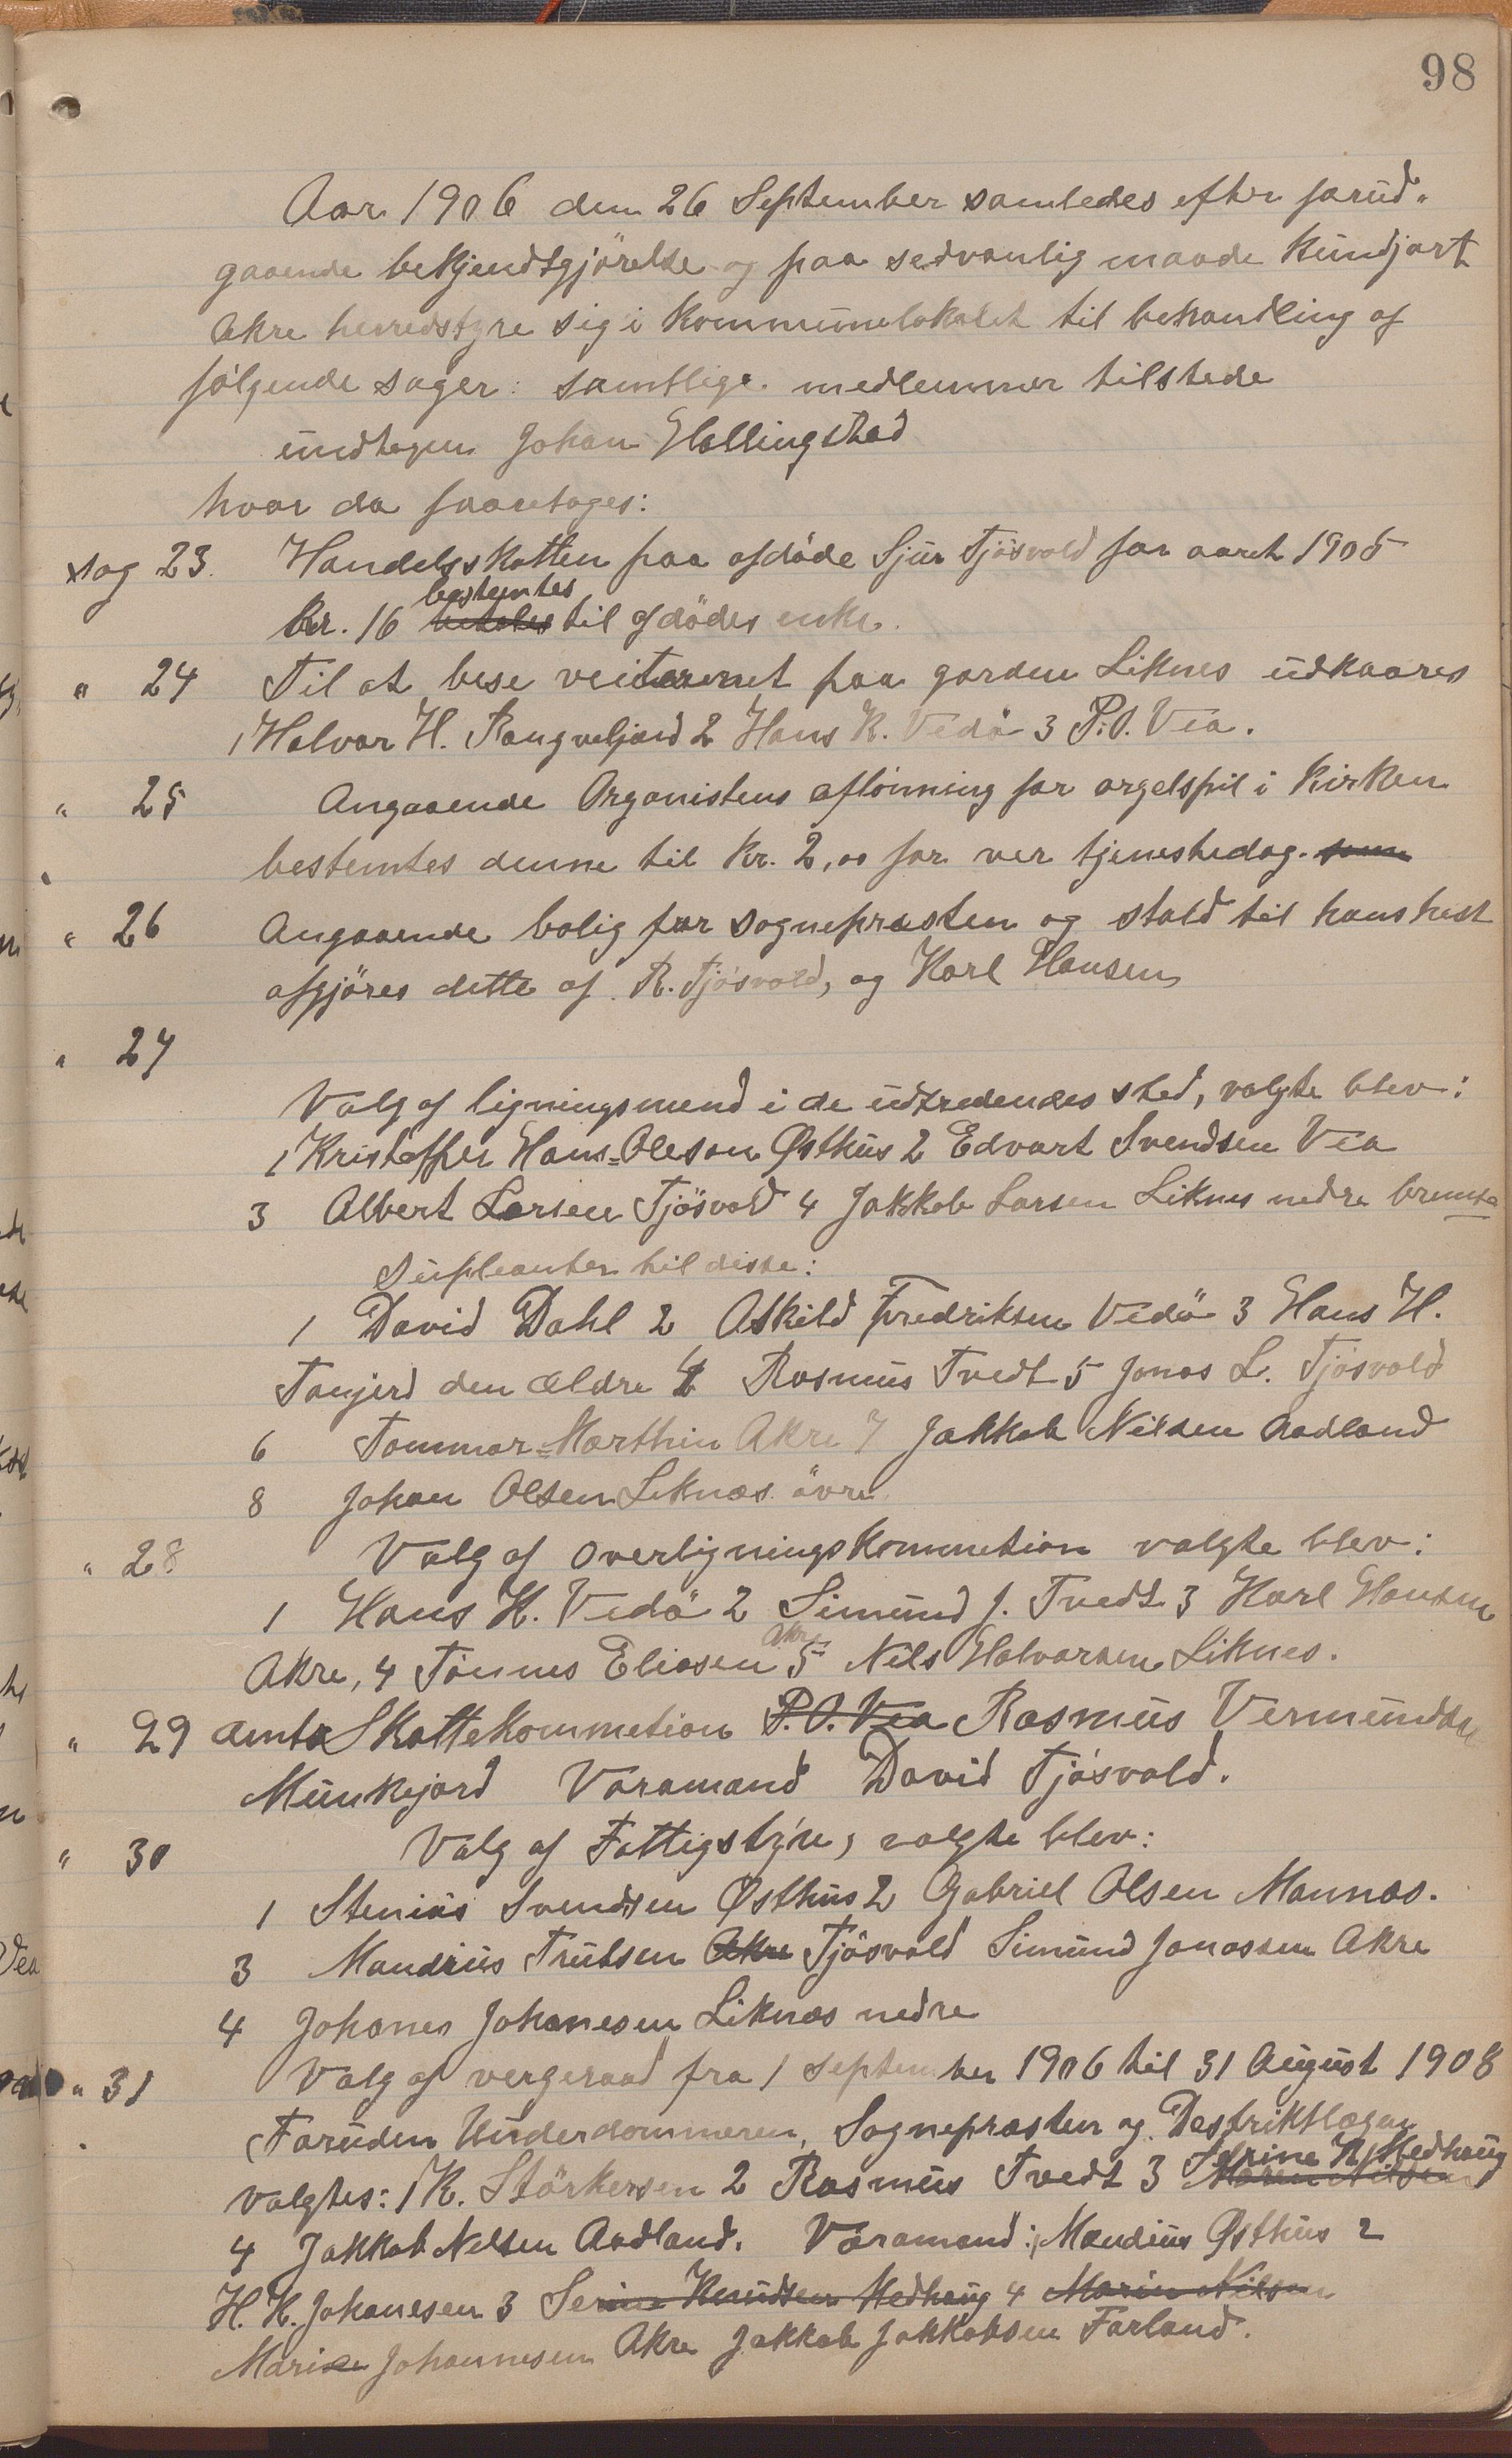 98
Aar 1906 den 26 September samledes efter forud„
gaaende bekjendtgjörelse og paa sedvanlig maade kundjort
Akre herredstyre sig i Kommunelokalet til behandling af
fölgende sager: samtlige medlemmer tilstede
undtagen Johan Hallingstad
hvor da foaretoges:
sag 23. Handelsskatten paa afdöde Sjur Tjösvold for aaret 1905
bestemtes
Kr. 16 betales til afdödes enke.
" 24 Til at bese veiterenet paa garden Liknes udkaares
1 Halvor H. Rangveljord 2 Hans K. Vedö 3 P. O. Vea.
" 25 Angaaende Organistens aflönning for orgelspil i kirken
bestemtes denne til Kr. 2,00 for ver tjenestedag. som
" 26 Angaaende bolig for sognepræsten og stald til hans hest
afgjöres dette af R. Tjösvold, og Karl Hansen
" 27
Valg af ligningsmend i de udtredendes sted, valgte blev:
1 Kristoffer Hans=Oleson Østhus 2 Edvart Svendsen Vea
3 Albert Larsen Tjösvold 4 Jakkob Larsen Liknes nedre
Supleanter til disse:
1 David Dahl 2 Askild Fredriksen Vedö 3 Hans H.
Tanjerd den ældre 4 Rasmus Tvedt 5 Jonas L. Tjösvold
6 Tommar=Marthin Akre 7 Jakkob Nilsen Aadland
8 Johan Olsen Liknæs övre
" 28 Valg af overligningskommetion valgte blev:
1 Hans K. Vedö 2 Simund J. Tvedt 3 Karl Hansen
Akre
Akre, 4 Tönnes Eliasen 5 Nils Halvorsen Liknes.
" 29 amtsskattekommetion P. O. Vea Rasmus Vermundsen
Munkejord Varamand David Tjösvold.
" 30 Valg af Fattigstyre, valgte blev:
1 Stenius Svendsen Østhus 2 Gabriel Olsen Mannæs.
3 Mandrius Trulsen Akre Tjösvold Simund Jonassen Akre
4 Johanes Johanesen Liknæs nedre
" 31 Valg af vergeraad fra 1 September 1906 til 31 August 1908
Foruden Underdommeren, Sognepræsten og Destriktslægen
Serine K. Medhaug
valgtes: 1 K. Störkersen 2 Rasmus Tvedt 3 Maren Nilsen
4 Jakkob Nelsen Aadland. Varamand: 1 Mandius Østhus 2
H. K. Johanesen 3 Serine Knudsen Medhaug 4 Marin Nilsen
Marie Johannesen Akre Jakkob Jakkobsen Farland.